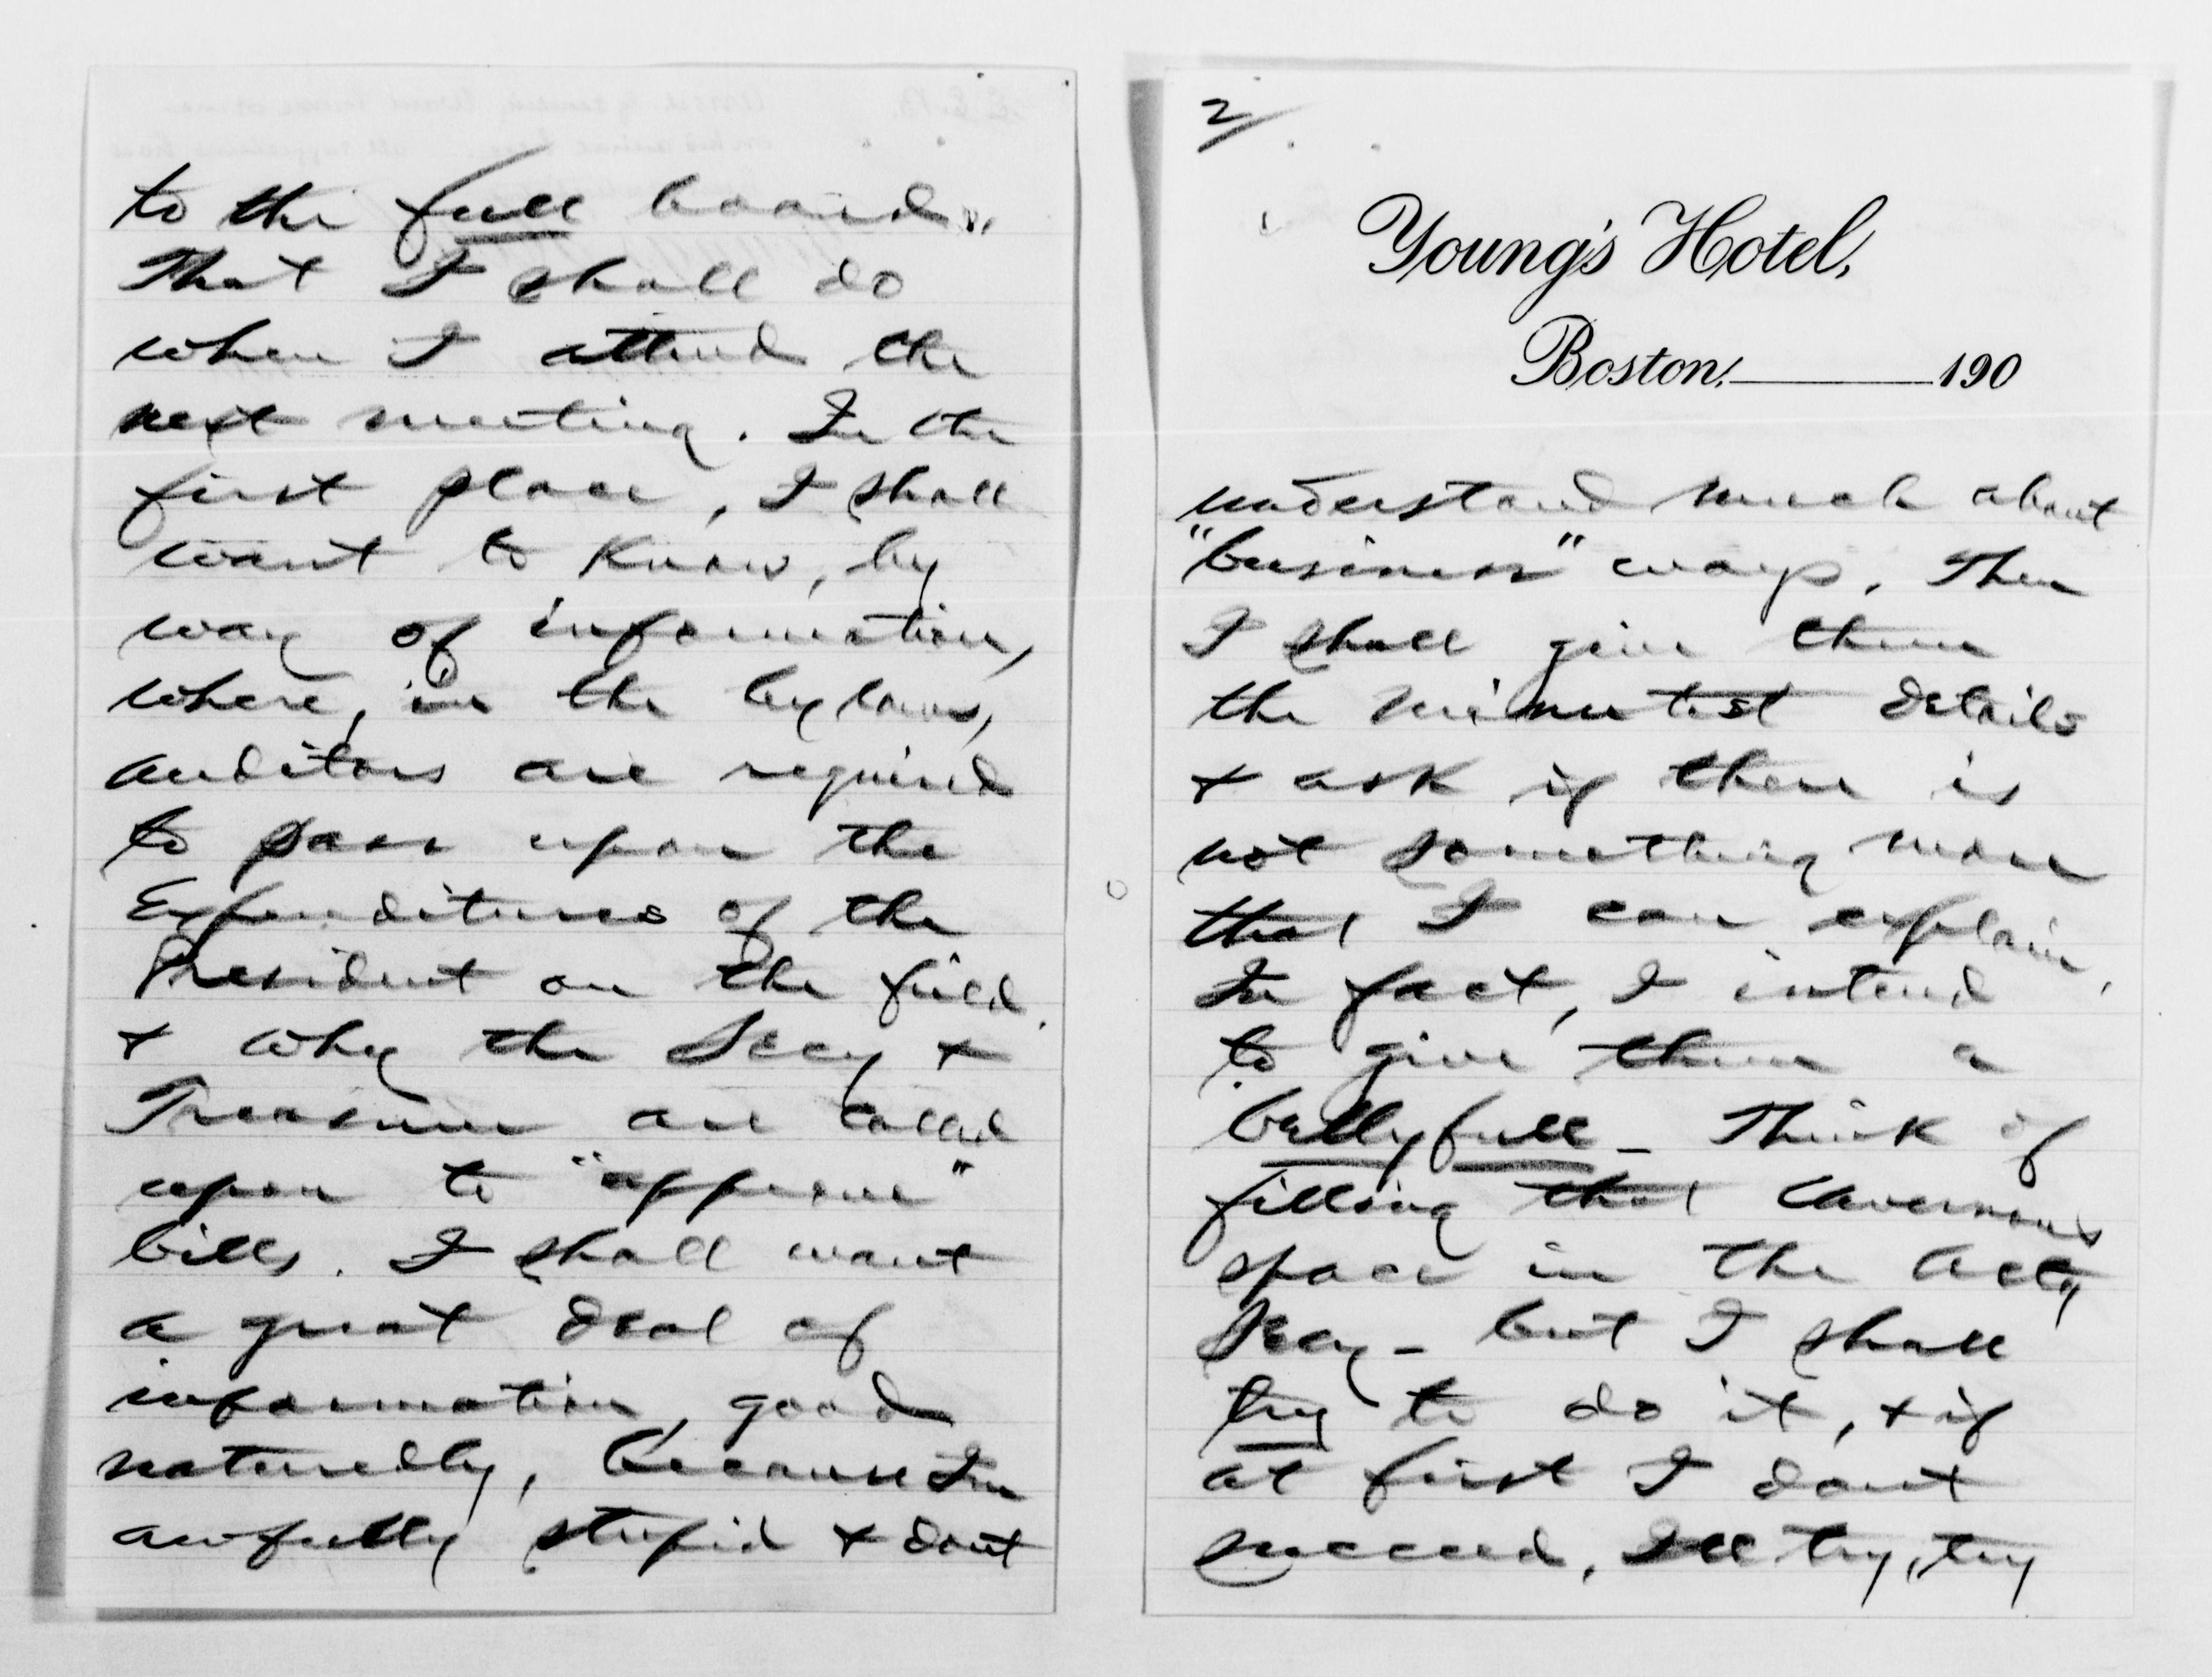 to the full board.
That I shall do
when I attend the
next meeting. In the
first place, I shall
want to know, by
way of information,
where, in the by laws,
auditors are required
to pass upon the
Expenditures of the
President on the field.
& why the Secy &
Treasurer are called
upon to "approve"
bills. I shall want
a great deal of
information, good
naturedly, because Im
awfully stupid & dont
2/
Young's Hotel,
Boston, 190
understand much about
"business" ways. Then
I shall give them
the minutest details
& ask if there is
not something more
that I can explain.
In fact, I intend
to give them a
bellyfull – Think of
filling that cavernous
space in the actg
Secy – but I shall
try to do it, & if
at first I dont
succeed, Ill try, try